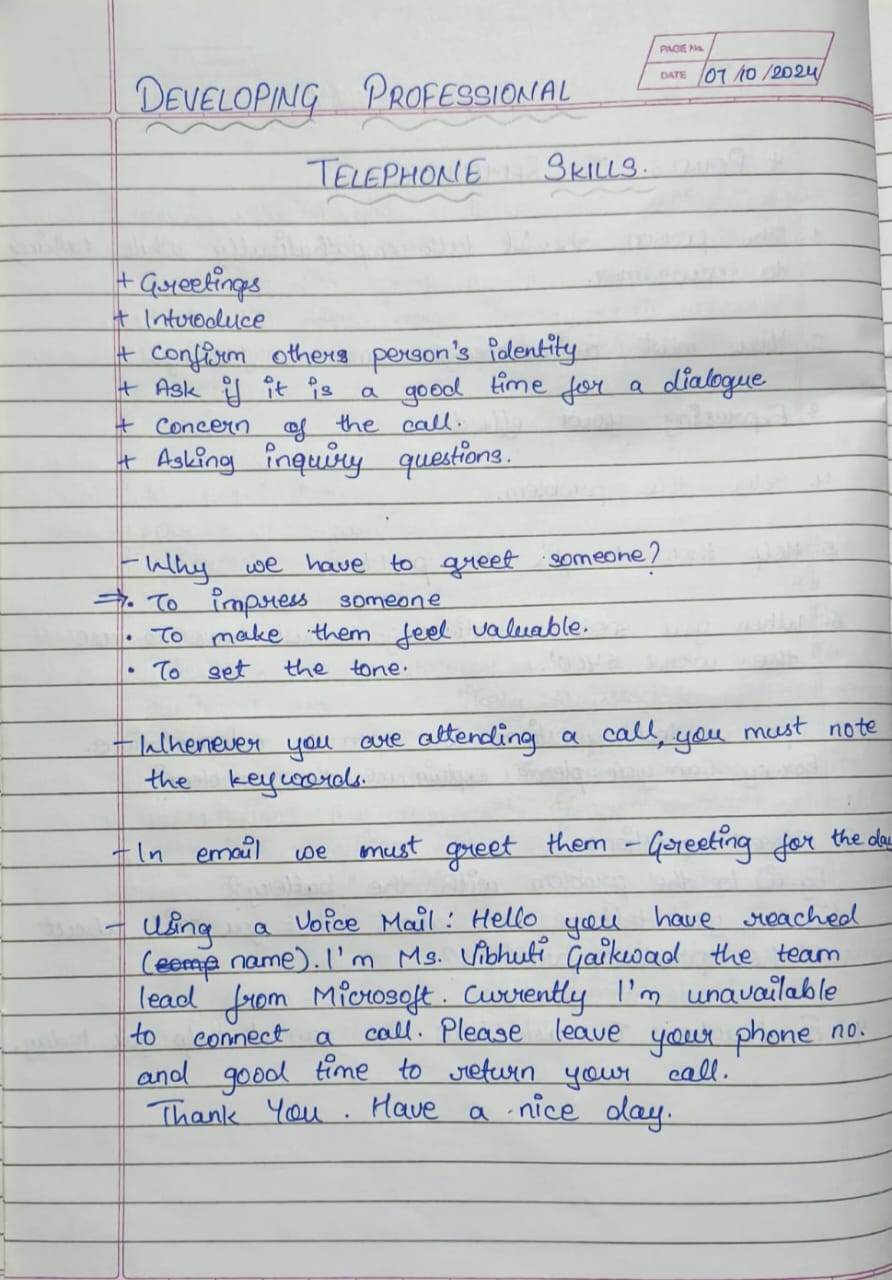 PAGE No.
DATE 07/10/2024
DEVELOPING PROFESSIONAL
TELEPHONE SKILLS.
+ Greetings
+ Introduce
+ Confirm others person's identity
+ Ask if it is a good time for a dialogue
+ Concern of the call.
+ Asking inquiry questions.
- Why we have to greet someone?
⇒• To impress someone
• To make them feel valuable.
• To set the tone.
- Whenever you are attending a call, you must note
the keywords.
- In email we must greet them - Greeting for the day
- Using a Voice Mail : Hello you have reached
(comp name). I'm Ms. Vibhuti Gaikwad the team
lead from Microsoft. Currently I'm unavailable
to connect a call. Please leave your phone no.
and good time to return your call.
Thank You. Have a nice day.